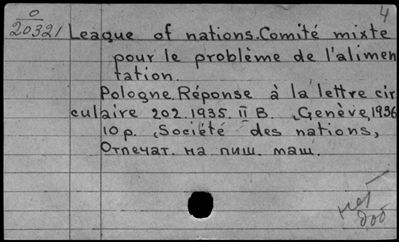 4
0
20321
League of nations. Comité mixte
pour le problème de l'alimen
tation.
Pologne. Réponse à la lettre cir
culaire 202.1935. II B. Genève, 1936
10 p. Société des nations,
Отпечат. на пиш. маш.
нет